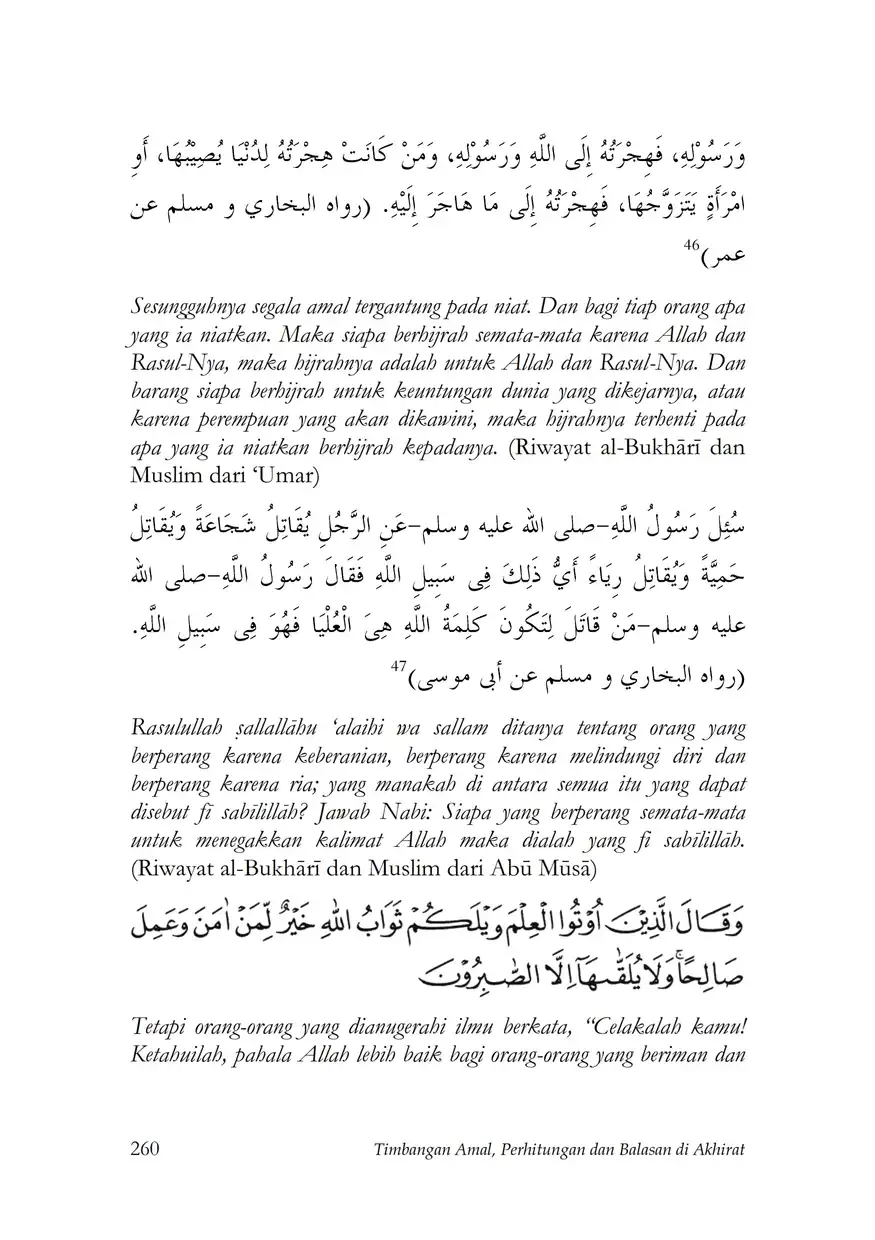 وَرَسُوْلِهِ، فَهِجْرَتُهُ إِلَى اللَّهِ وَرَسُوْلِهِ، وَمَنْ كَانَتْ هِجْرَتُهُ لِدُنْيَا يُصِيْبُهَا، أَوِ
امْرَأَةٍ يَتَزَوَّجُهَا، فَهِجْرَتُهُ إِلَى مَا هَاجَرَ إِلَيْهِ. (رواه البخاري و مسلم عن
عمر)46
Sesungguhnya segala amal tergantung pada niat. Dan bagi tiap orang apa
yang ia niatkan. Maka siapa berhijrah semata-mata karena Allah dan
Rasul-Nya, maka hijrahnya adalah untuk Allah dan Rasul-Nya. Dan
barang siapa berhijrah untuk keuntungan dunia yang dikejarnya, atau
karena perempuan yang akan dikawini, maka hijrahnya terhenti pada
apa yang ia niatkan berhijrah kepadanya. (Riwayat al-Bukhārī dan
Muslim dari ‘Umar)
سُئِلَ رَسُولُ اللَّهِ-صلى الله عليه وسلم-عَنِ الرَّجُلِ يُقَاتِلُ شَجَاعَةً وَيُقَاتِلُ
حَمِيَّةً وَيُقَاتِلُ رِيَاءً أَيُّ ذَلِكَ فِى سَبِيلِ اللَّهِ فَقَالَ رَسُولُ اللَّهِ-صلى الله
عليه وسلم-مَنْ قَاتَلَ لِتَكُونَ كَلِمَةُ اللَّهِ هِىَ الْعُلْيَا فَهُوَ فِى سَبِيلِ اللَّهِ.
(رواه البخاري و مسلم عن أبى موسى)47
Rasulullah ṣallallāhu ‘alaihi wa sallam ditanya tentang orang yang
berperang karena keberanian, berperang karena melindungi diri dan
berperang karena ria; yang manakah di antara semua itu yang dapat
disebut fī sabīlillāh? Jawab Nabi: Siapa yang berperang semata-mata
untuk menegakkan kalimat Allah maka dialah yang fi sabīlillāh.
(Riwayat al-Bukhārī dan Muslim dari Abū Mūsā)
وَقَالَ الَّذِيْنَ اُوْتُوا الْعِلْمَ وَيْلَكُمْ ثَوَابُ اللّٰهِ خَيْرٌ لِّمَنْ اٰمَنَ وَعَمِلَ
صَالِحًاۚ وَلَا يُلَقّٰىهَآ اِلَّا الصّٰبِرُوْنَ
Tetapi orang-orang yang dianugerahi ilmu berkata, “Celakalah kamu!
Ketahuilah, pahala Allah lebih baik bagi orang-orang yang beriman dan
260 Timbangan Amal, Perhitungan dan Balasan di Akhirat